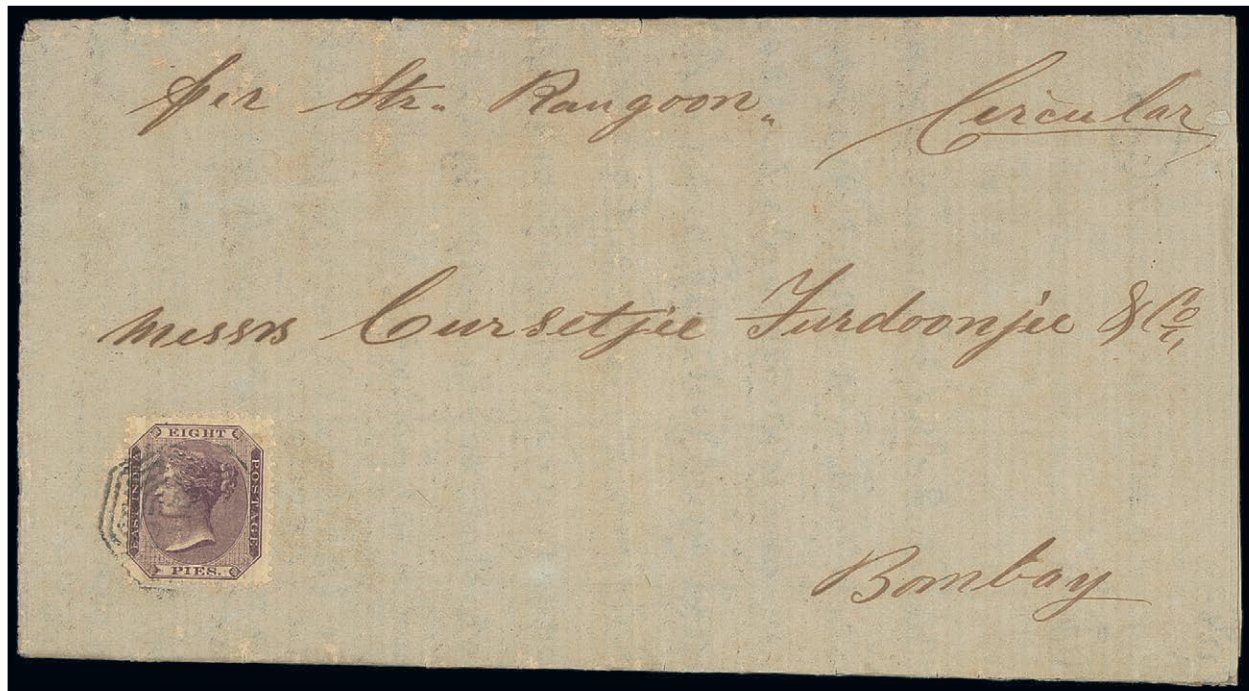 per Str„ Rangoon„ Circular
Messrs Cursetjee Furdoonjee & Co„
EIGHT
EAST INDIA POSTAGE
PIES.
Bombay